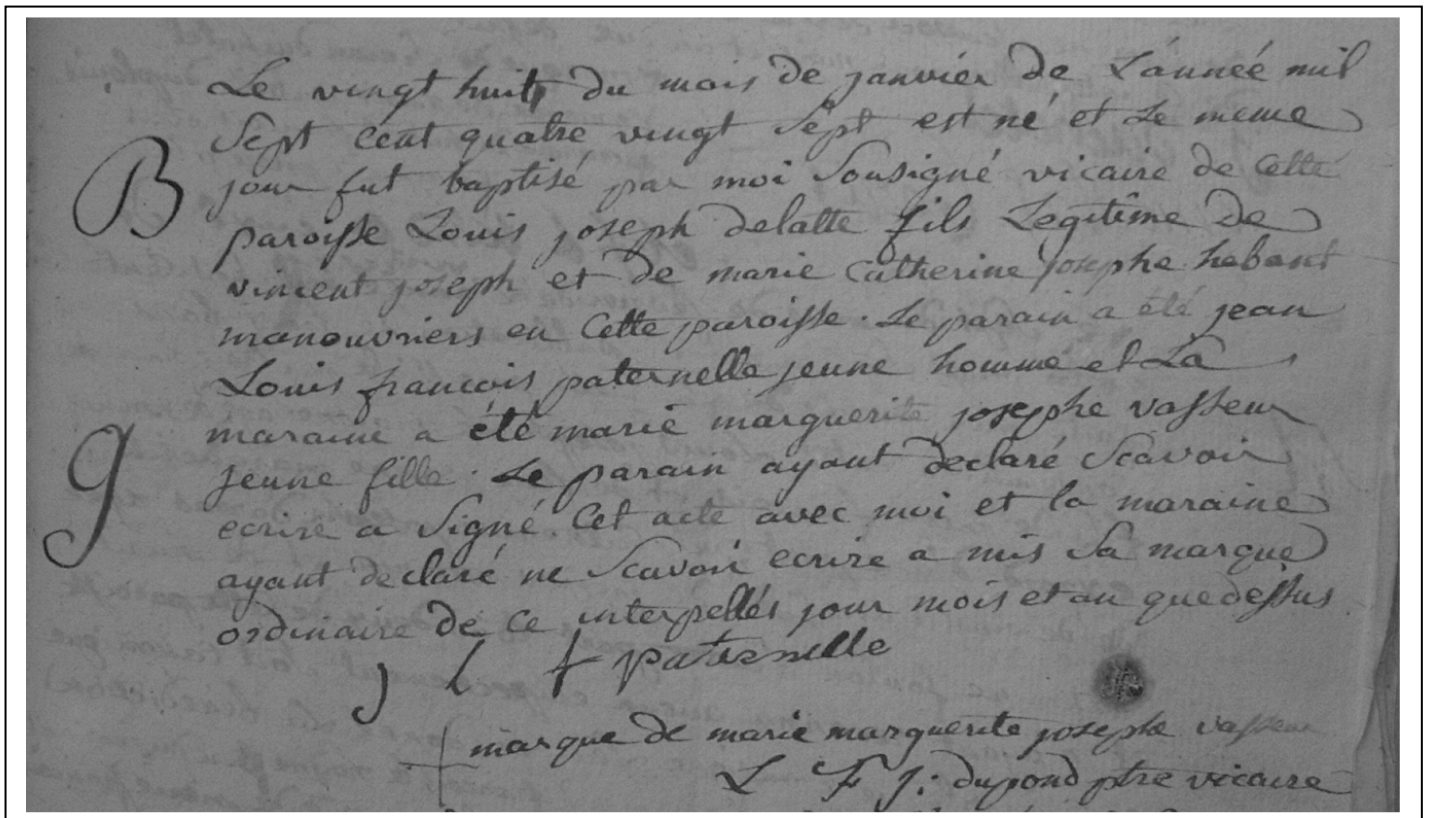 Le vingt huit du mois de janvier de L'année mil
Sept cent quatre vingt sept est né et Le meme
B
jour fut baptisé par moi Sousigné vicaire de Cette
paroisse Louis joseph delatte fils Legitime de
vincent joseph et de marie Catherine josephe hebant
manouvriers en Cette paroisse. Le parain a été jean
Louis françois paternelle jeune homme et La
maraine a été marie marguerite josephe vasseur
g
jeune fille. Le parain ayant declaré Scavoir
ecrire a Signé Cet acte avec moi et la maraine
ayant declaré ne Scavoir ecrire a mis Sa marque
ordinaire de Ce interpellés jour mois et an que dessus
j l f paternelle
marque de marie marguerite josephe vasseur
L F J: dupond ptre vicaire